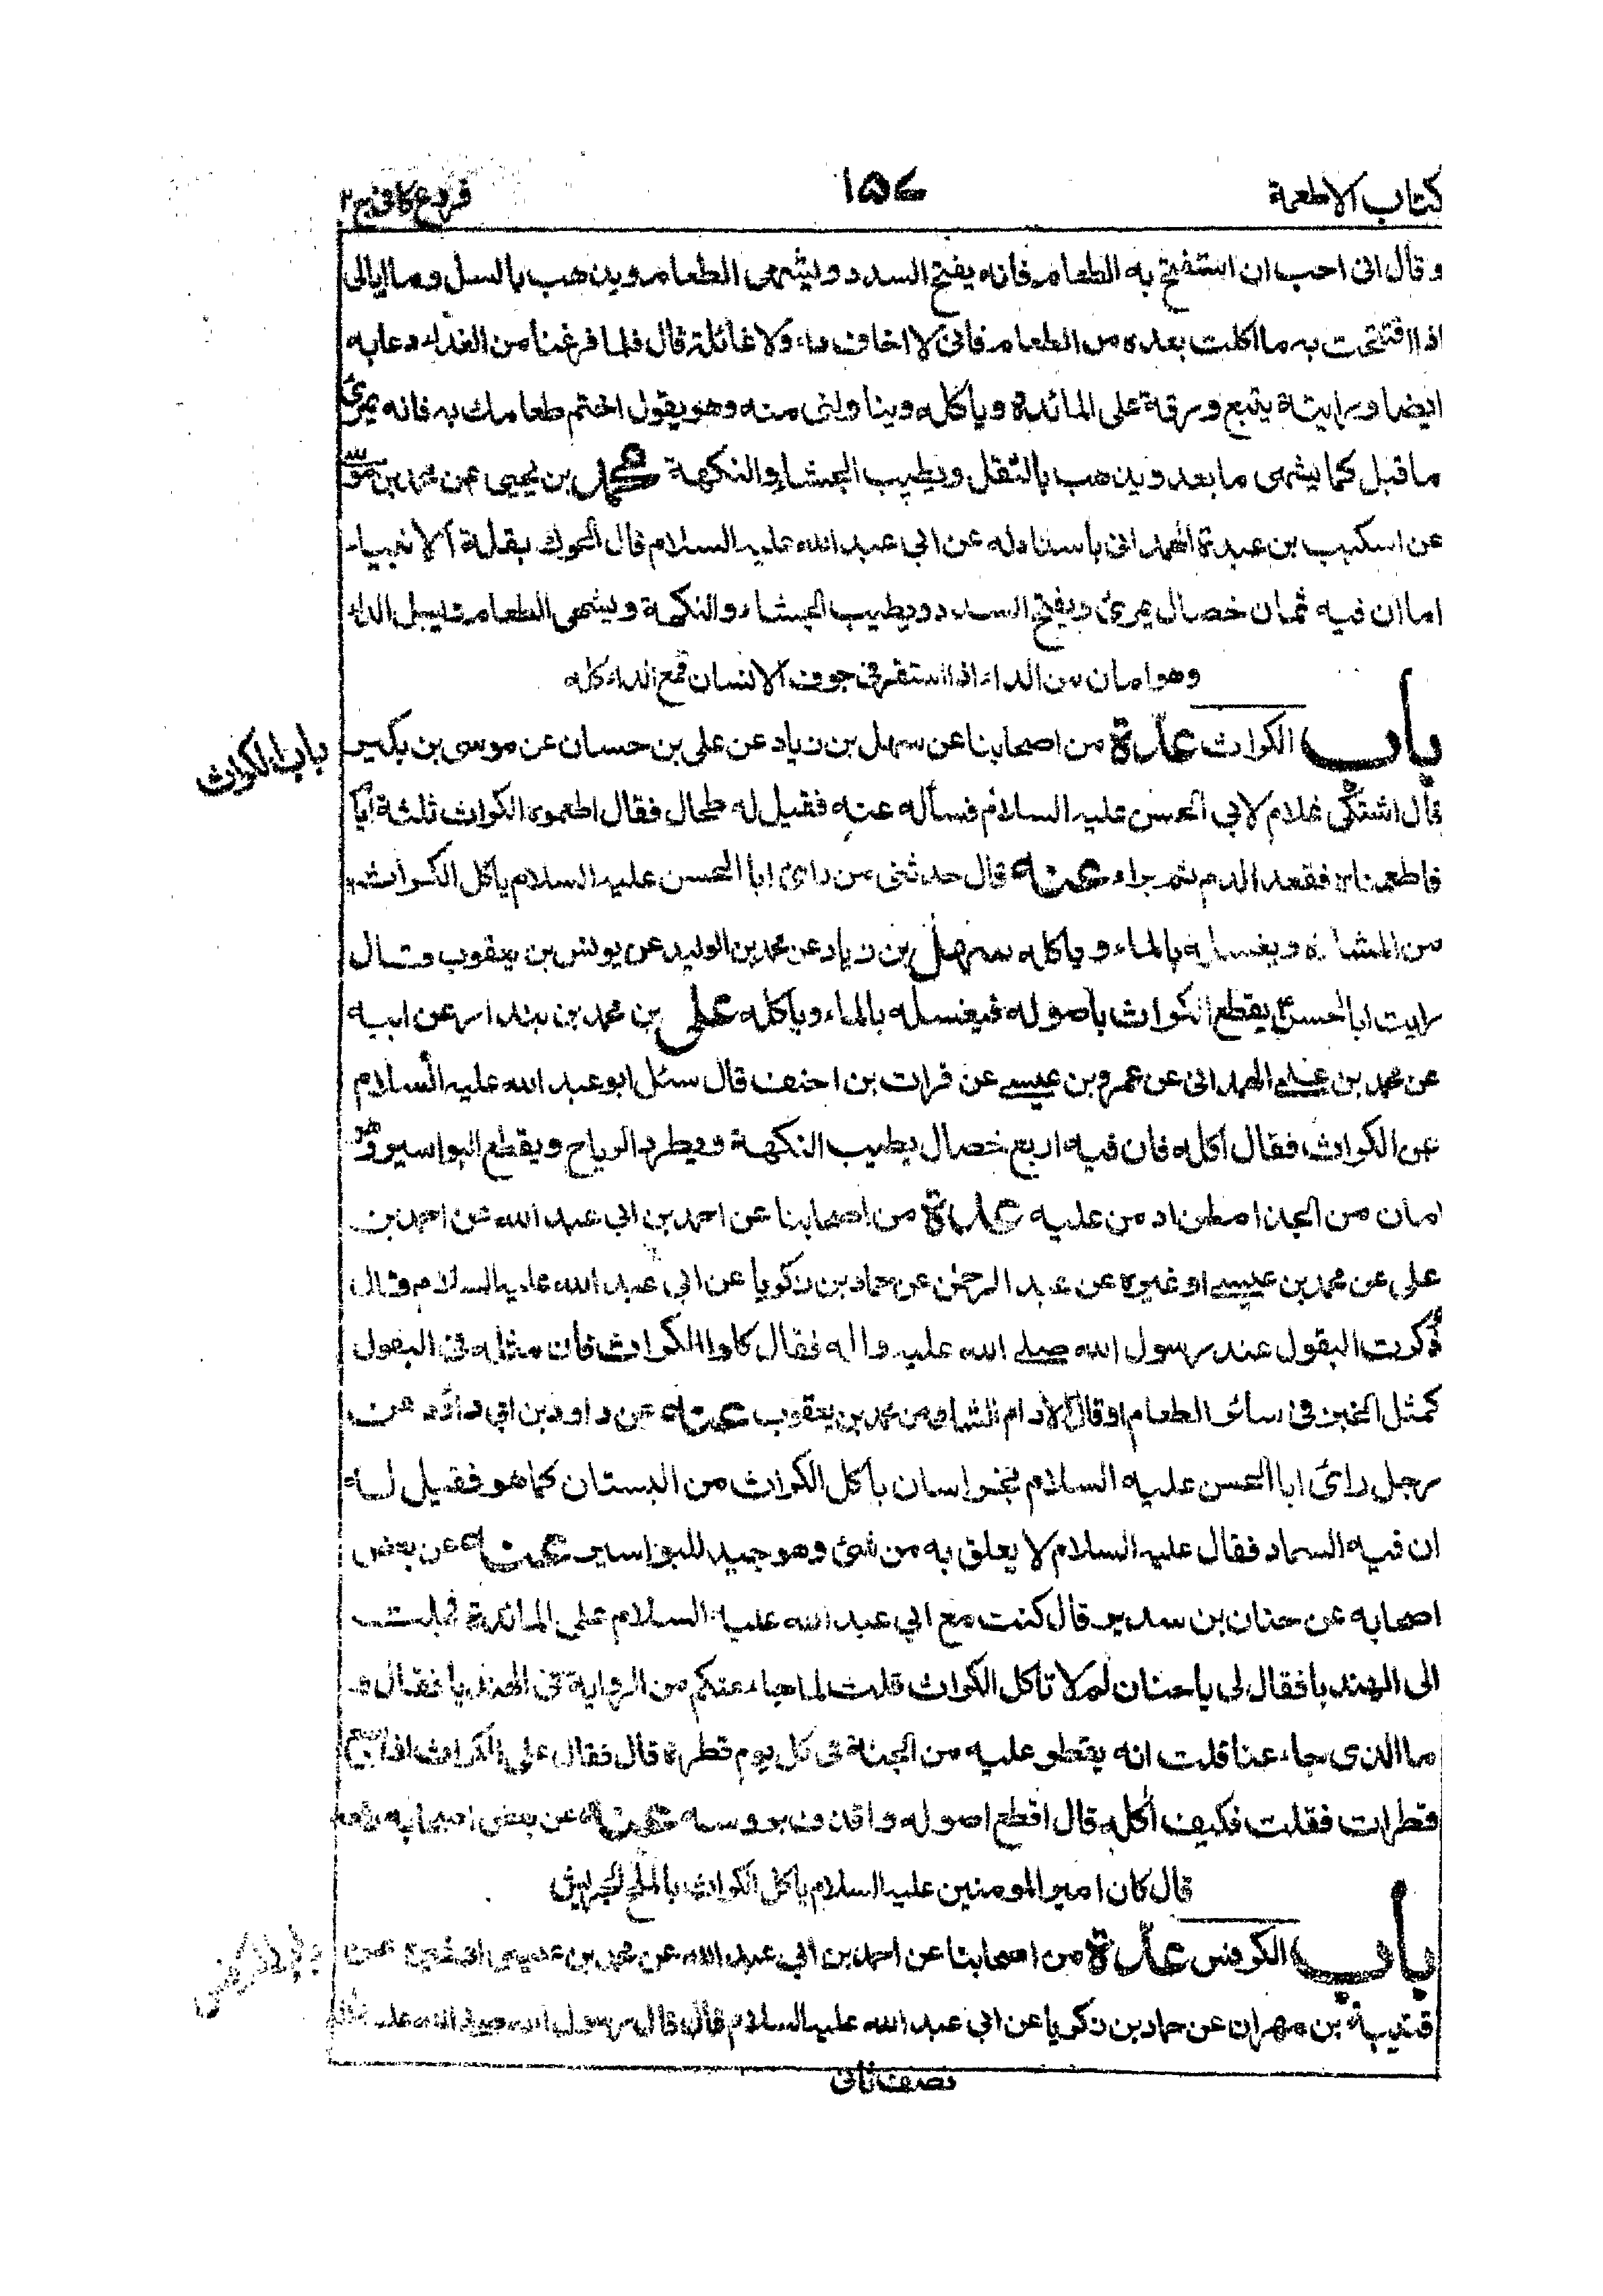 كتاب الاطعمة
١٥٧
فروع كافى ج ٢
وقال انى احب ان استفتح به الطعام فانه يفتح السدد ويشهى الطعام ويذهب بالسل وما ابالى
اذا افتتحت به ما اكلت بعده من الطعام فانى لا اخاف داء ولا غائلة قال فلما فرغنا من الغداء دعا به
ايضا ورايته يتبع ورقة على المائدة وياكله ويناولنى منه وهو يقول اختم طعامك به فانه يمرئ
ما قبل كما يشهى ما بعد ويذهب بالثقل ويطيب الجشاء والنكهة محمد بن يحيى عن محمد بن موسى
عن اسكيب بن عبدة الهمدانى باسناد له عن ابى عبد الله عليه السلام قال الحوك بقلة الانبياء
اما ان فيه ثمان خصال يمرئ ويفتح السدد ويطيب الجشاء والنكهة ويشهى الطعام ويسل الداء
وهو امان من الداء اذا استقر فى جوف الانسان قمع الداء كله
باب الكراث عدة من اصحابنا عن سهل بن زياد عن على بن حسان عن موسى بن بكير
باب الكراث
قال اشتكى غلام لابى الحسن عليه السلام فسأله عنه فقيل له طحال فقال اطعموه الكراث ثلثة ايام
فاطعمناه فقعد الدم ثم برأ عنه قال حدثنى من رائ ابا الحسن عليه السلام ياكل الكراث
من المشارة ويغسله بالماء وياكله سهل بن زياد عن محمد بن الوليد عن يونس بن يعقوب وقال
رايت ابا الحسن ع يقطع الكراث باصوله فيغسله بالماء وياكله على بن محمد بن بندار عن ابيه
عن محمد بن على الهمدانى عن عمرو بن عيسى عن فرات بن احنف قال سئل ابو عبد الله عليه السلام
عن الكراث فقال اكله فان فيه اربع خصال يطيب النكهة ويطرد الرياح ويقطع البواسير وهو
امان من الجذام لمن ادمن عليه عدة من اصحابنا عن احمد بن ابى عبد الله عن احمد بن
على عن محمد بن عيسى او غيره عن عبد الرحمن عن حماد بن زكريا عن ابى عبد الله عليه السلام وقال
ذكرت البقول عند رسول الله صلى الله عليه واله فقال كلوا الكراث فان مثله فى البقول
كمثل الخبز فى سائر الطعام او قال الادام الشك من محمد بن يعقوب عنه عن داود بن ابى داؤد عن
رجل رائ ابا الحسن عليه السلام بخراسان ياكل الكراث من البستان كما هو فقيل له
ان فيه السماد فقال عليه السلام لا يعلق به من شئ وهو جيد للبواسير عنه عن بعض
اصحابه عن حنان بن سدير قال كنت مع ابى عبد الله عليه السلام على المائدة فملت
الى الهندبا فقال لى يا حنان لم لا تاكل الكراث قلت لما جاء عنكم من الرواية فى الهندبا فقال و
ما الذى جاء عنا قلت انه يقطر عليه من الجنة فى كل يوم قطرة قال فقال على الكراث اذا سبع
قطرات فقلت فكيف اكله قال اقطع اصوله واقذف برووسه عنه عن بعض اصحابه رفعه
قال كان امير المومنين عليه السلام ياكل الكراث بالملح الجريش
باب الكرفس عدة من اصحابنا عن احمد بن ابى عبد الله عن محمد بن عيسى او غيره عن
باب الكرفس
قتيبة بن مهران عن حماد بن زكريا عن ابى عبد الله عليه السلام قال قال رسول الله صلى الله عليه واله
نصف ثانى